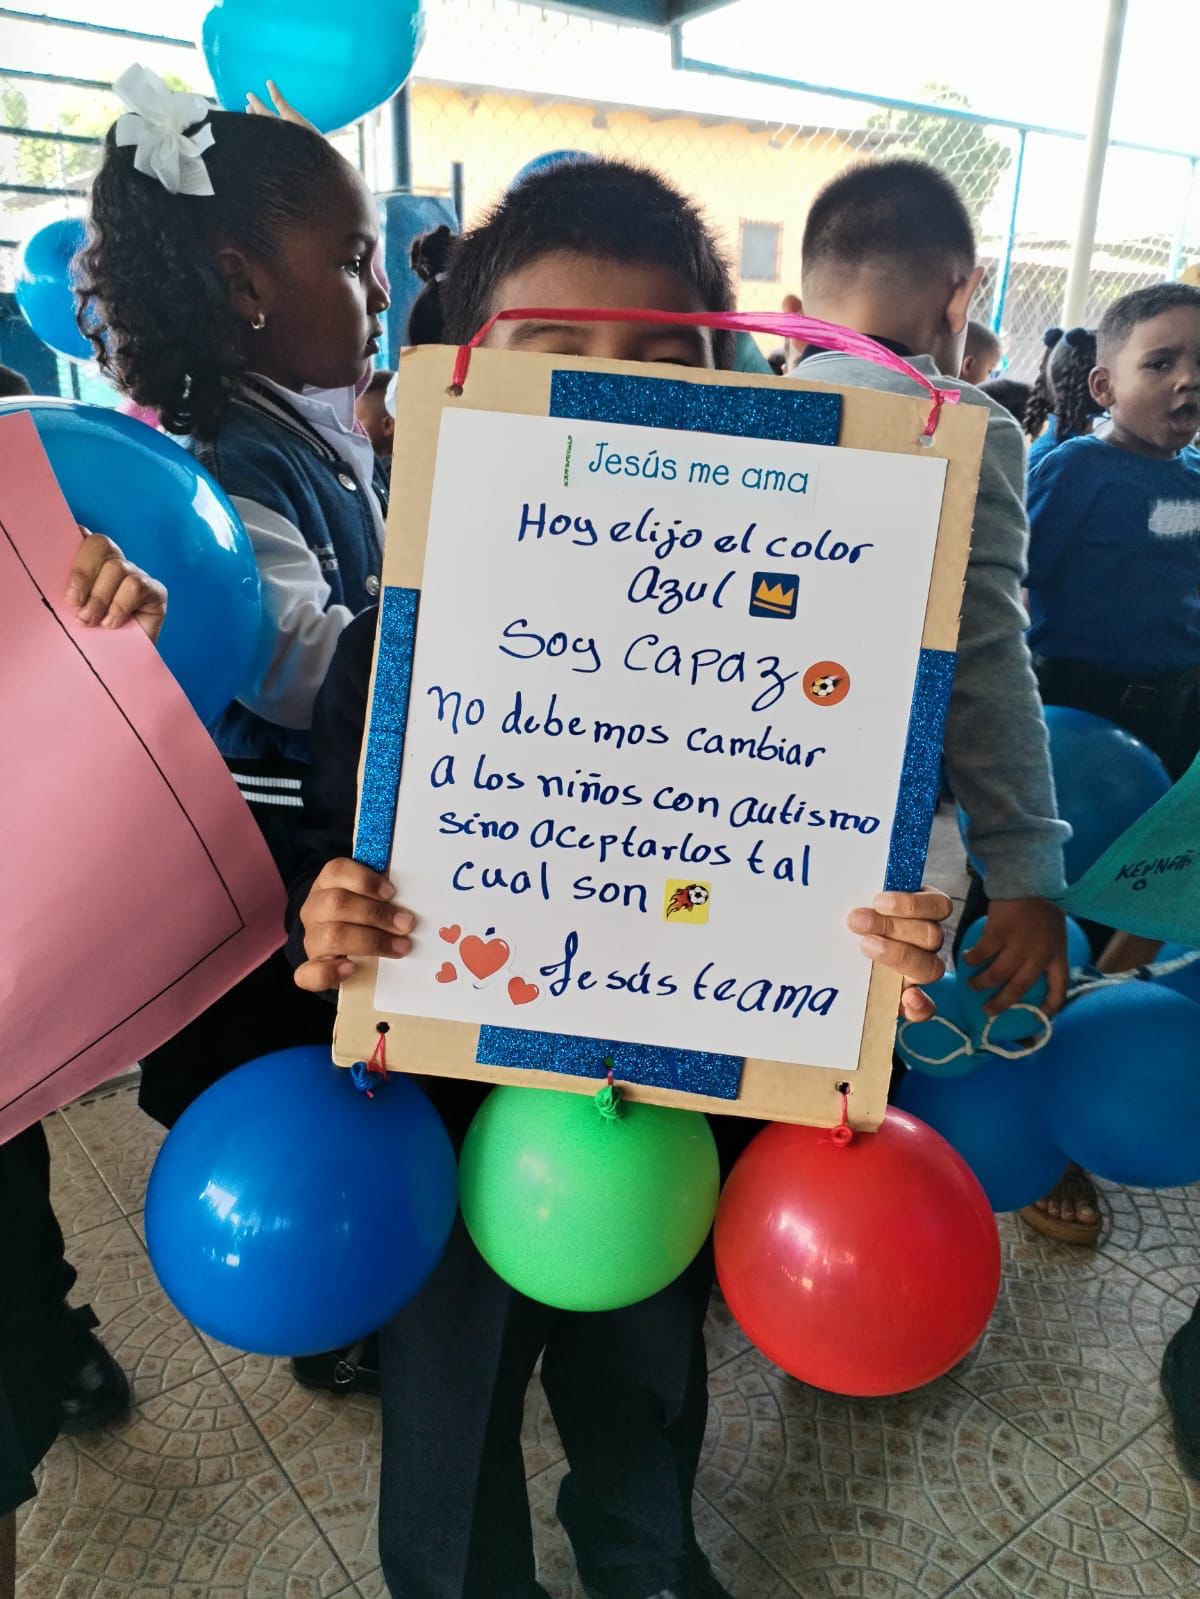 Jesús me ama
Hoy elijo el color
Azul
Soy Capaz
No debemos cambiar
a los niños con autismo
sino aceptarlos tal
cual son
Jesús te ama
KENNETH